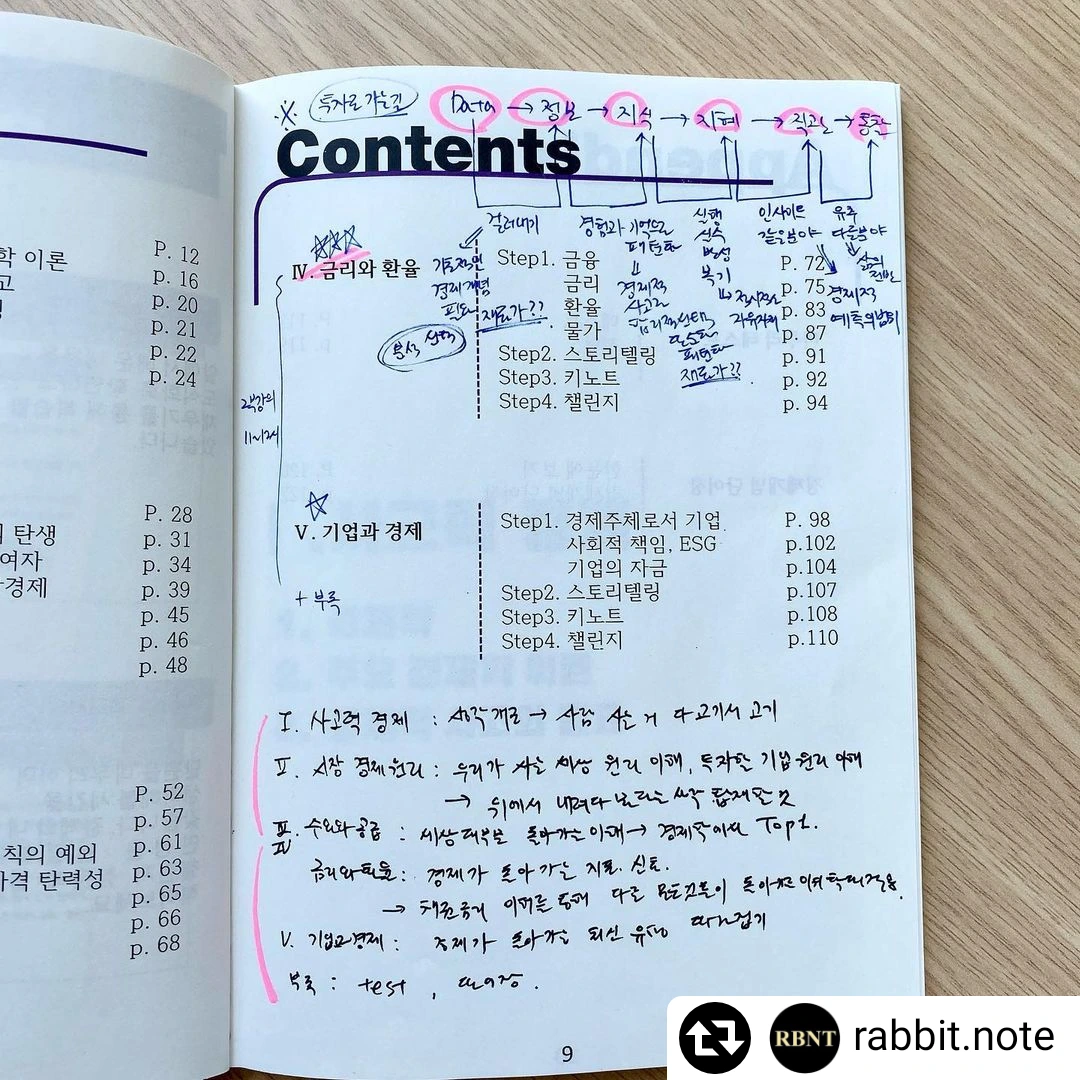 학 이론 P. 12
고 p. 16
p. 20
p. 21
p. 22
p. 24
P. 28
탄생 p. 31
여자 p. 34
경제 p. 39
p. 45
p. 46
p. 48
P. 52
p. 57
p. 61
칙의 예외 p. 63
가격 탄력성 p. 65
p. 66
p. 68
투자로 가는길
Data → 정보 → 지식 → 지혜 → 직관 → 통찰
Contents
걸러내기
기초적인
경제개념
필요
재료가??
분석 선택
경험과 기억으로
패턴화
경제적
사고로
합리적 선택
패턴화
재료가??
실행
실수
반성
복기
인사이트
같은분야
유추
다른분야
삶의
전반
경제적
예측의 범위
Ⅳ. 금리와 환율
Step1. 금융 P. 72
금리 p. 75
환율 p. 83
물가 p. 87
Step2. 스토리텔링 p. 91
Step3. 키노트 p. 92
Step4. 챌린지 p. 94
2부강의
Ⅴ. 기업과 경제
Step1. 경제주체로서 기업 P. 98
사회적 책임, ESG p.102
기업의 자금 p.104
Step2. 스토리텔링 p.107
Step3. 키노트 p.108
Step4. 챌린지 p.110
+ 부록
I. 사고력 경제 : 생각개로 → 사람 사는 거 다 고기서 고기
Ⅱ. 시장 경제원리 : 우리가 사는 세상 원리 이해, 투자할 기업 원리 이해
→ 위에서 내려다 보려는 시각 탑재한 것
Ⅲ. 수요와 공급 : 세상 대부분 돌아가는 이해 → 경제학에서 Top1.
Ⅳ 금리와 환율 : 경제가 돌아 가는 지표. 신호.
→ 채권금리 이해를 통해 다른 모든것들이 돌아가는 이해 확대적용.
V. 기업과 경제 : 경제가 돌아 가는 최신 유행 따라잡기
부록 : test , 단어장.
9
RBNT rabbit.note